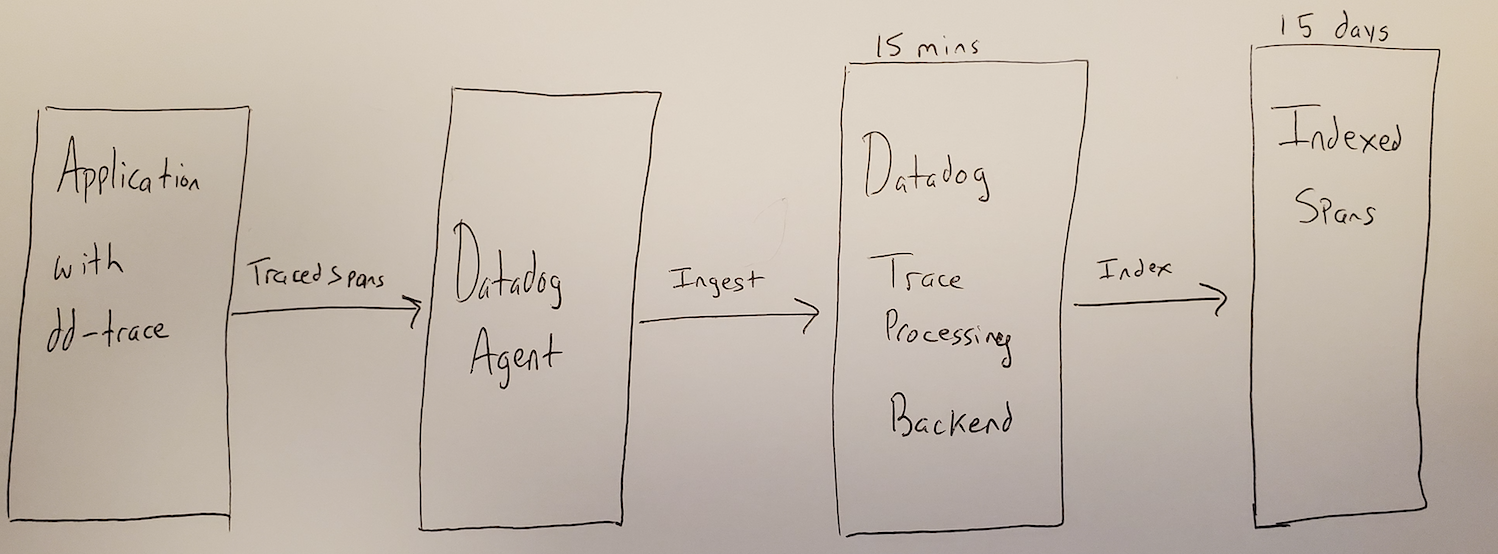 Application
with
dd-trace
Traced Spans
Datadog
Agent
Ingest
15 mins
Datadog
Trace
Processing
Backend
Index
15 days
Indexed
Spans